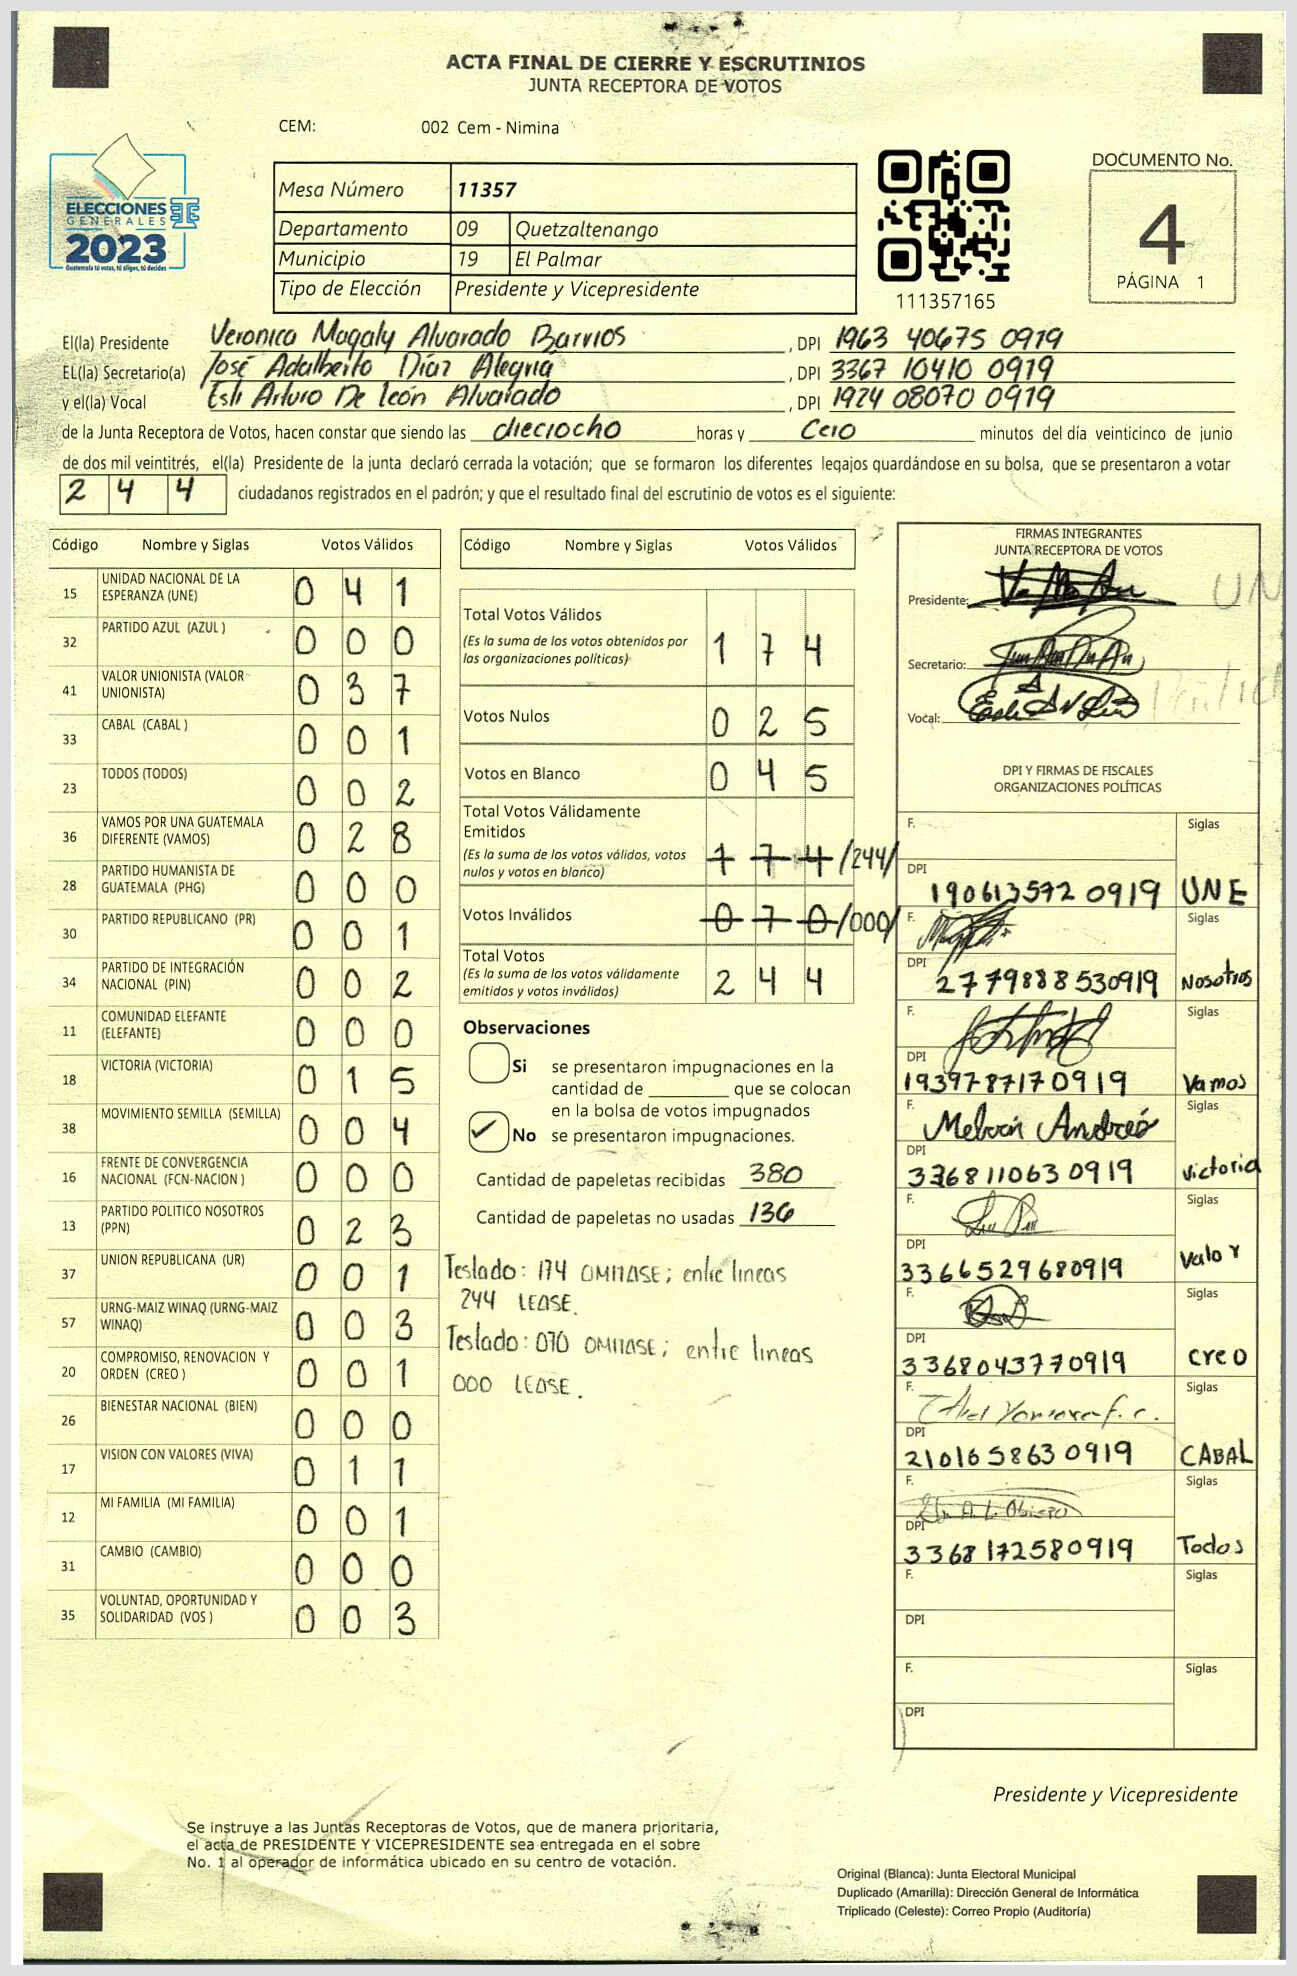 ACTA FINAL DE CIERRE Y ESCRUTINIOS
JUNTA RECEPTORA DE VOTOS
CEM: 002 Cem - Nimina
ELECCIONES
GENERALES
2023
Guatemala tú votas, tú eliges, tú decides
Mesa Número 11357
Departamento 09 Quetzaltenango
Municipio 19 El Palmar
Tipo de Elección Presidente y Vicepresidente
111357165
DOCUMENTO No.
4
PÁGINA 1
El(la) Presidente Veronica Magaly Alvarado Barrios , DPI 1963 40675 0919
EL(la) Secretario(a) José Adalberto Díaz Alegria , DPI 3367 10410 0919
y el(la) Vocal Esli Arturo De león Alvarado , DPI 1924 08070 0919
de la Junta Receptora de Votos, hacen constar que siendo las dieciocho horas y Cero minutos del día veinticinco de junio
de dos mil veintitrés, el(la) Presidente de la junta declaró cerrada la votación; que se formaron los diferentes legajos guardándose en su bolsa, que se presentaron a votar
2 4 4 ciudadanos registrados en el padrón; y que el resultado final del escrutinio de votos es el siguiente:
Código Nombre y Siglas Votos Válidos
15 UNIDAD NACIONAL DE LA ESPERANZA (UNE) 0 4 1
32 PARTIDO AZUL (AZUL ) 0 0 0
41 VALOR UNIONISTA (VALOR UNIONISTA) 0 3 7
33 CABAL (CABAL ) 0 0 1
23 TODOS (TODOS) 0 0 2
36 VAMOS POR UNA GUATEMALA DIFERENTE (VAMOS) 0 2 8
28 PARTIDO HUMANISTA DE GUATEMALA (PHG) 0 0 0
30 PARTIDO REPUBLICANO (PR) 0 0 1
34 PARTIDO DE INTEGRACIÓN NACIONAL (PIN) 0 0 2
11 COMUNIDAD ELEFANTE (ELEFANTE) 0 0 0
18 VICTORIA (VICTORIA) 0 1 5
38 MOVIMIENTO SEMILLA (SEMILLA) 0 0 4
16 FRENTE DE CONVERGENCIA NACIONAL (FCN-NACION ) 0 0 0
13 PARTIDO POLITICO NOSOTROS (PPN) 0 2 3
37 UNION REPUBLICANA (UR) 0 0 1
57 URNG-MAIZ WINAQ (URNG-MAIZ WINAQ) 0 0 3
20 COMPROMISO, RENOVACION Y ORDEN (CREO ) 0 0 1
26 BIENESTAR NACIONAL (BIEN) 0 0 0
17 VISION CON VALORES (VIVA) 0 1 1
12 MI FAMILIA (MI FAMILIA) 0 0 1
31 CAMBIO (CAMBIO) 0 0 0
35 VOLUNTAD, OPORTUNIDAD Y SOLIDARIDAD (VOS ) 0 0 3
Código Nombre y Siglas Votos Válidos
Total Votos Válidos 1 7 4
(Es la suma de los votos obtenidos por
las organizaciones políticas)
Votos Nulos 0 2 5
Votos en Blanco 0 4 5
Total Votos Válidamente
Emitidos
(Es la suma de los votos válidos, votos
nulos y votos en blanco) 1 7 4 /244/
Votos Inválidos 0 7 0 /000/
Total Votos
(Es la suma de los votos válidamente
emitidos y votos inválidos) 2 4 4
Observaciones
Si se presentaron impugnaciones en la
cantidad de ________ que se colocan
en la bolsa de votos impugnados
✓ No se presentaron impugnaciones.
Cantidad de papeletas recibidas 380
Cantidad de papeletas no usadas 136
Testado: 174 OMITASE; entre lineas
244 LEASE.
Testado: 070 OMITASE; entre lineas
000 LEASE.
FIRMAS INTEGRANTES
JUNTA RECEPTORA DE VOTOS
Presidente:
Secretario:
Vocal:
UN
DPI Y FIRMAS DE FISCALES
ORGANIZACIONES POLÍTICAS
F. Siglas
DPI 190613572 0919 UNE
F. Siglas
DPI 2779888530919 Nosotros
F. Siglas
DPI 1939787170919 Vamos
F. Melvin Andreé Siglas
DPI 3368110630919 victoria
F. Siglas
DPI 3366529680919 Valor
F. Siglas
DPI 3368043770919 creo
F. Siglas
DPI 2101658630919 CABAL
F. Siglas
DPI 3368172580919 Todos
F. Siglas
DPI
F. Siglas
DPI
Presidente y Vicepresidente
Se instruye a las Juntas Receptoras de Votos, que de manera prioritaria,
el acta de PRESIDENTE Y VICEPRESIDENTE sea entregada en el sobre
No. 1 al operador de informática ubicado en su centro de votación.
Original (Blanca): Junta Electoral Municipal
Duplicado (Amarilla): Dirección General de Informática
Triplicado (Celeste): Correo Propio (Auditoría)